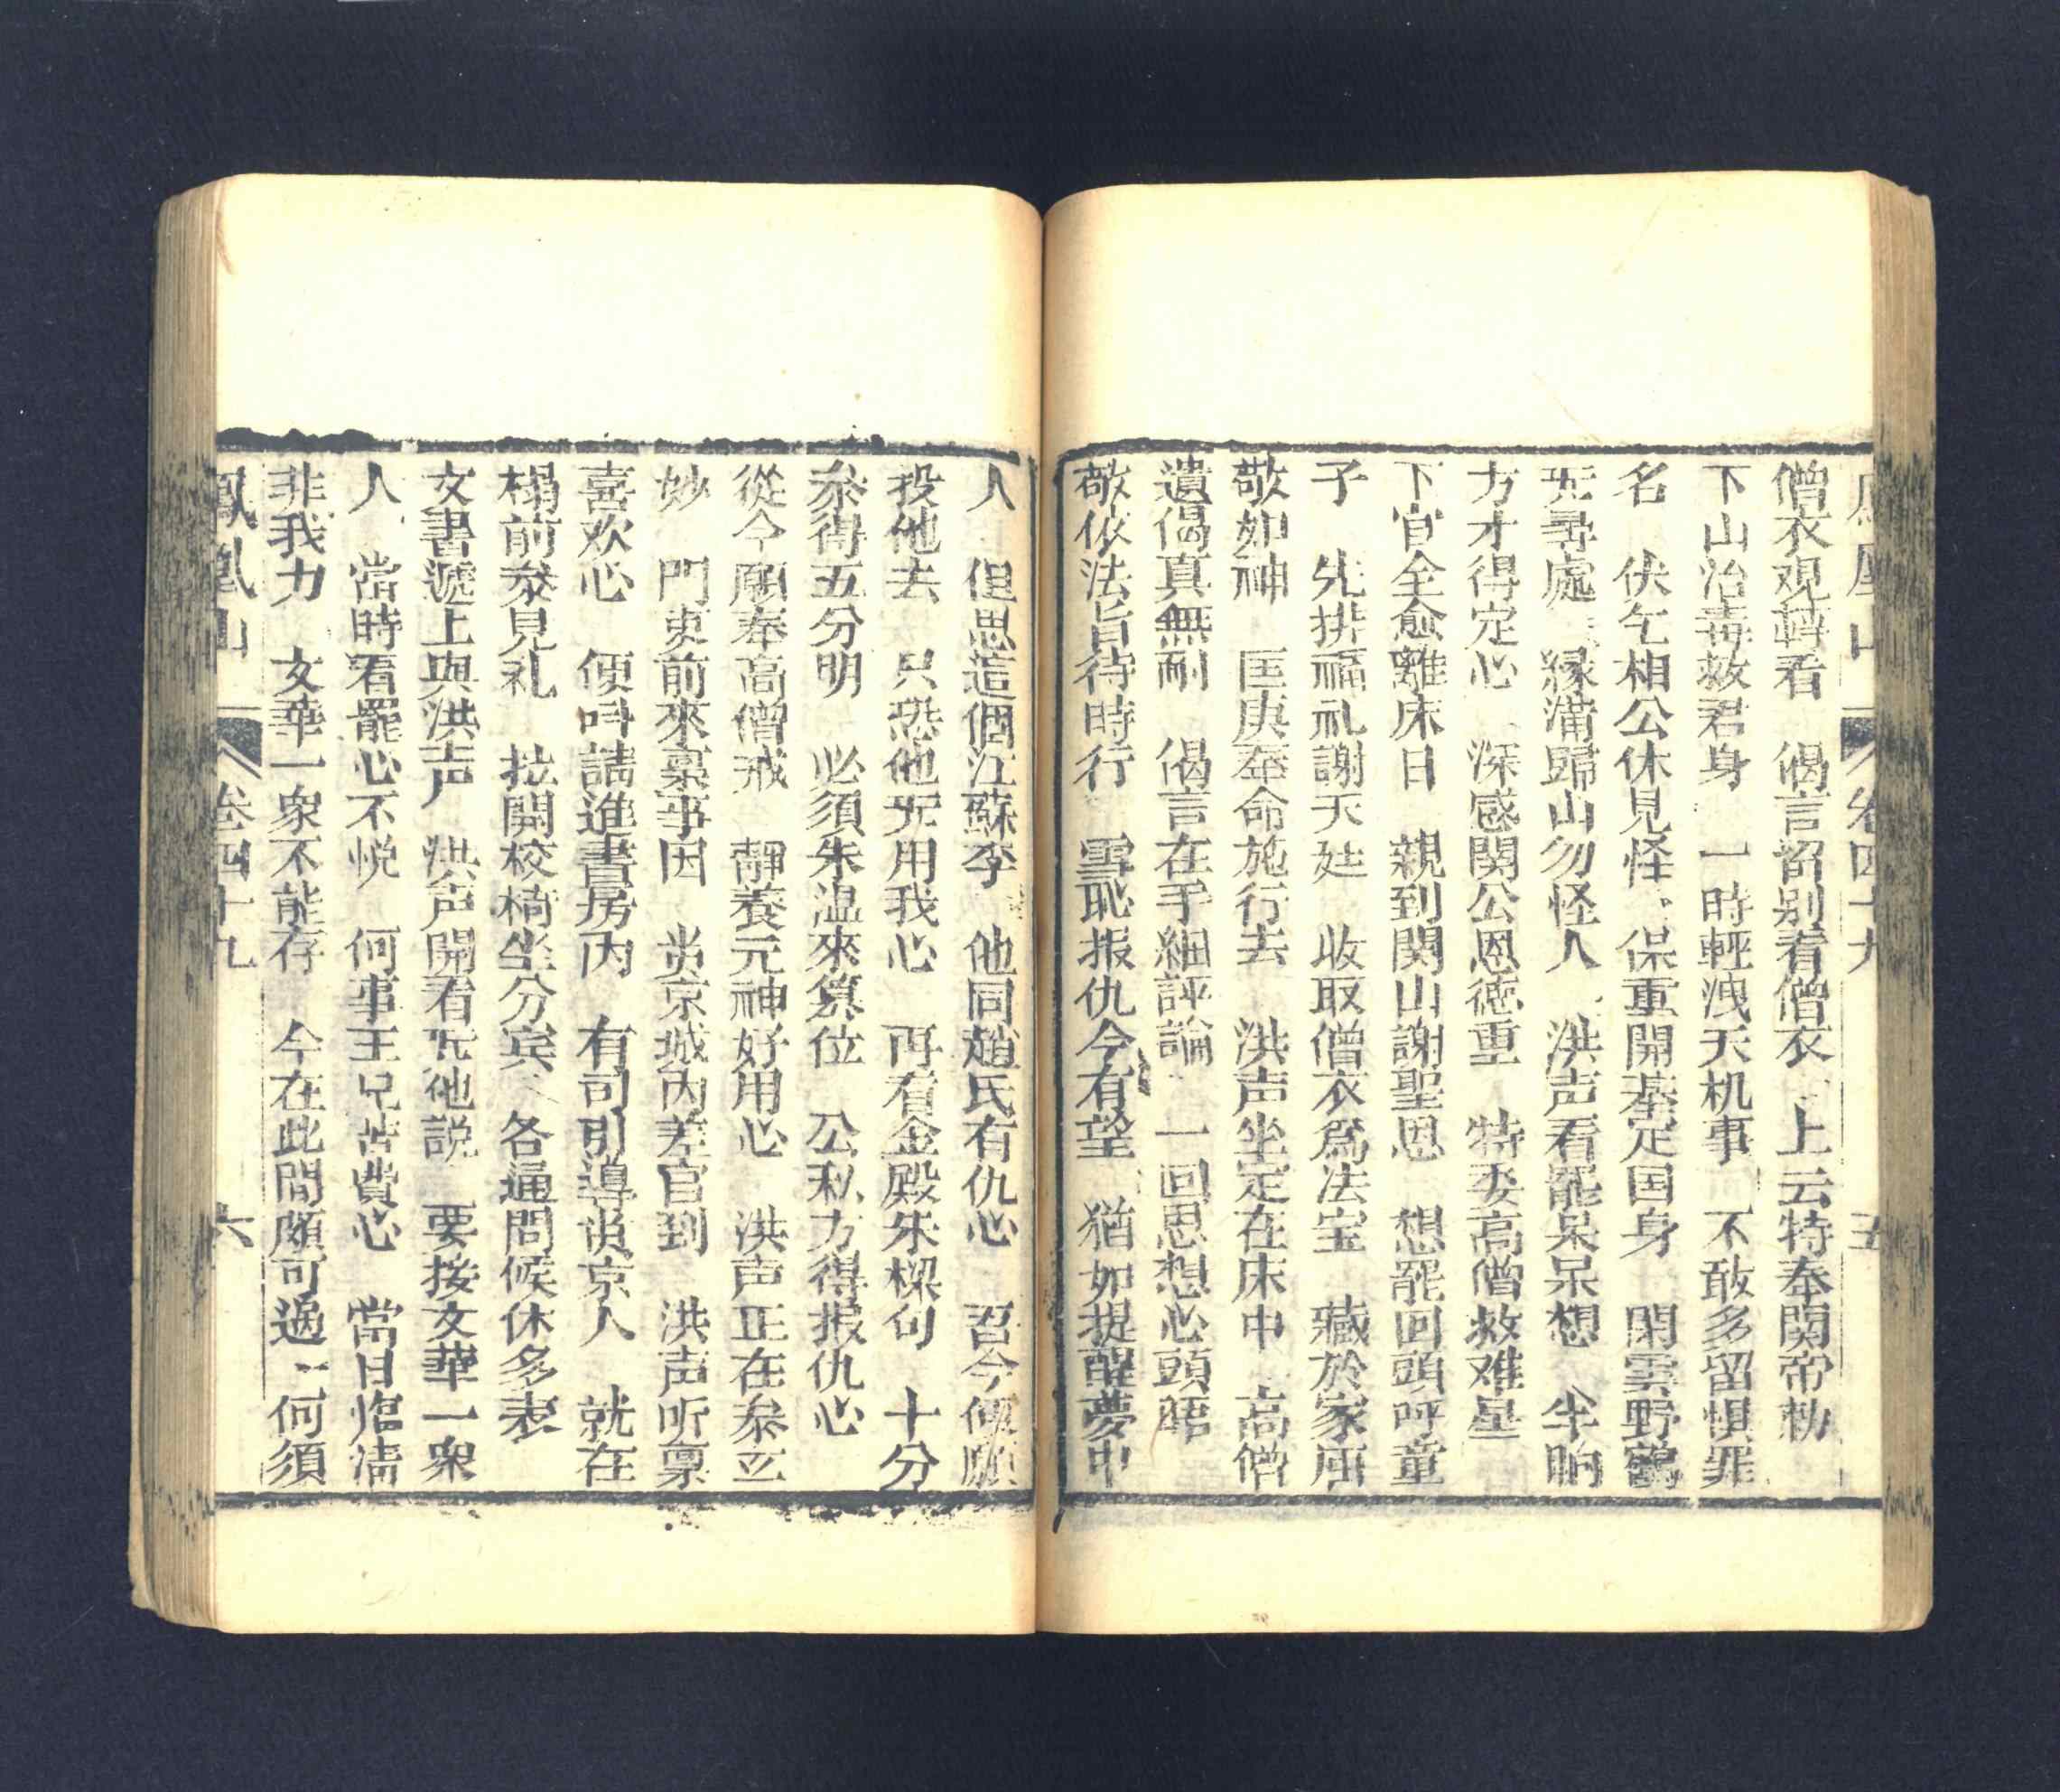 僧衣观轉看　偈言留别看僧衣　上云特奉関帝勅
下山治毒救君身　一時輕洩天机事　不敢多留惧罪
名　伏乞相公休見怪　保重開基定国身　閑雲野鶴
无尋處　縁满歸山勿怪人　洪声看罷呆呆想　半晌
方才得定心　深感関公恩德重　特委高僧救难星
下官全愈離床日　親到関山謝聖恩　想罷回頭呼童
子　先排福礼謝天廷　收取僧衣爲法宝　藏於家庙
敬如神　匡庚奉命施行去　洪声坐定在床中　高僧
遺偈真無耐　偈言在手細評論　一回思想心頭晤
敬依法旨待時行　雪恥报仇今有望　猶如提醒夢中
人　但思這個江蘇李　他同趙氏有仇心　召今傾願
投他去　只恐他无用我心　再看金殿朱樑句　十分
叅得五分明　必須朱温來篡位　公私方得报仇心
從今願奉高僧戒　靜養元神好用心　洪声正在叅玄
妙　門吏前來禀事因　岚京城内差官到　洪声听禀
喜欢心　便叫請進書房内　有司引導岚京人　就在
榻前叅見礼　拡開校椅坐分宾　各通問候休多表
文書遞上與洪声　洪声開看无他説　要接文華一衆
人　當時看罷心不悦　何事王兄苦費心　當日臨淸
非我力　文華一衆不能存　今在此間頗可過　何須
鳳凰山　卷四十九　六